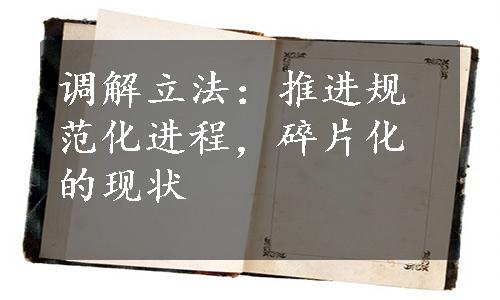 调解立法：推进规
范化进程，碎片化
的现状